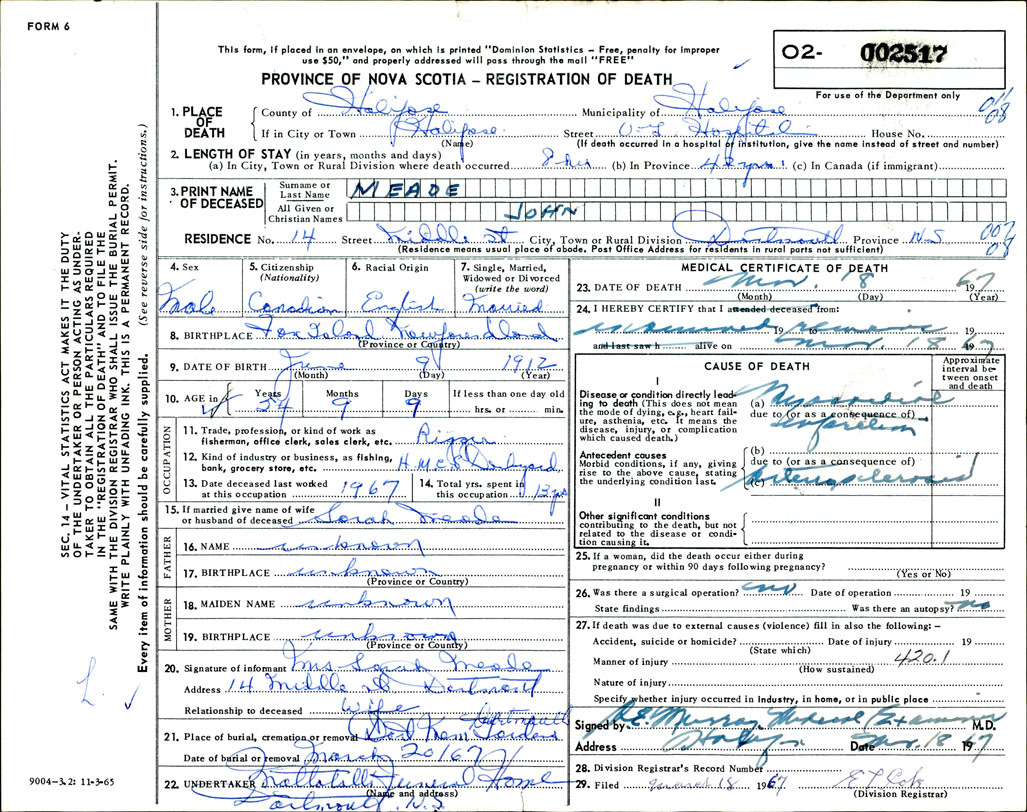 FORM 6
This form, if placed in an envelope, on which is printed "Dominion Statistics – Free, penalty for improper
use $50," and properly addressed will pass through the mail "FREE"
PROVINCE OF NOVA SCOTIA – REGISTRATION OF DEATH
O2- 002517
For use of the Department only
1. PLACE OF DEATH
County of Halifax Municipality of Halifax 011 08
If in City or Town Halifax Street Hospital House No.
(Name) (If death occurred in a hospital or institution, give the name instead of street and number)
2. LENGTH OF STAY (in years, months and days)
(a) In City, Town or Rural Division where death occurred 8 hrs (b) In Province 42 yrs (c) In Canada (if immigrant)
3. PRINT NAME OF DECEASED
Surname or Last Name MEADE
All Given or Christian Names JOHN
RESIDENCE No. 14 Street Middle St City, Town or Rural Division Dartmouth Province N.S 002 08
(Residence means usual place of abode. Post Office Address for residents in rural parts not sufficient)
4. Sex Male
5. Citizenship (Nationality) Canadian
6. Racial Origin English
7. Single, Married, Widowed or Divorced (write the word) Married
8. BIRTHPLACE Fox Island Newfoundland
(Province or Country)
9. DATE OF BIRTH June 9 1912
(Month) (Day) (Year)
10. AGE in Years 54 Months 9 Days 9 If less than one day old hrs. or min.
OCCUPATION
11. Trade, profession, or kind of work as
fisherman, office clerk, sales clerk, etc. Rigger
12. Kind of industry or business, as fishing,
bank, grocery store, etc. H.M.C. Dockyard
13. Date deceased last worked
at this occupation 1967
14. Total yrs. spent in
this occupation 13 yrs
15. If married give name of wife
or husband of deceased Sarah Meade
FATHER
16. NAME unknown
17. BIRTHPLACE unknown
(Province or Country)
MOTHER
18. MAIDEN NAME unknown
19. BIRTHPLACE unknown
(Province or Country)
20. Signature of informant Mrs Sarah Meade
Address 14 Middle St Dartmouth
Relationship to deceased Wife
21. Place of burial, cremation or removal Dartmouth Gardens
Date of burial or removal March 20/67
22. UNDERTAKER Funeral Home
(Name and address)
Dartmouth, N.S
MEDICAL CERTIFICATE OF DEATH
23. DATE OF DEATH Mar. 18 1967
(Month) (Day) (Year)
24. I HEREBY CERTIFY that I attended deceased from:
19 19
and last saw h alive on Mar. 18 1967
CAUSE OF DEATH
Approximate interval between onset and death
I
Disease or condition directly leading to death (This does not mean the mode of dying, e.g., heart failure, asthenia, etc. It means the disease, injury, or complication which caused death.)
(a) Myocardial
due to (or as a consequence of)
infarction
Antecedent causes
Morbid conditions, if any, giving rise to the above cause, stating the underlying condition last.
(b)
due to (or as a consequence of)
(c) Arteriosclerosis
II
Other significant conditions
contributing to the death, but not related to the disease or condition causing it.
25. If a woman, did the death occur either during
pregnancy or within 90 days following pregnancy?
(Yes or No)
26. Was there a surgical operation? no Date of operation 19
State findings Was there an autopsy? no
27. If death was due to external causes (violence) fill in also the following: –
Accident, suicide or homicide? Date of injury 19
(State which)
Manner of injury 420.1
(How sustained)
Nature of injury
Specify whether injury occurred in industry, in home, or in public place
Signed by Murray Medical Examiner M.D.
Address Halifax Date Mar. 18 1967
28. Division Registrar's Record Number
29. Filed March 18 1967
(Division Registrar)
SEC. 14 – VITAL STATISTICS ACT MAKES IT THE DUTY
OF THE UNDERTAKER OR PERSON ACTING AS UNDERTAKER
TO OBTAIN ALL THE PARTICULARS REQUIRED
IN THE "REGISTRATION OF DEATH" AND TO FILE THE
SAME WITH THE DIVISION REGISTRAR WHO SHALL ISSUE THE BURIAL PERMIT.
WRITE PLAINLY WITH UNFADING INK. THIS IS A PERMANENT RECORD.
Every item of information should be carefully supplied. (See reverse side for instructions.)
L.
9004–3.2: 11-3-65